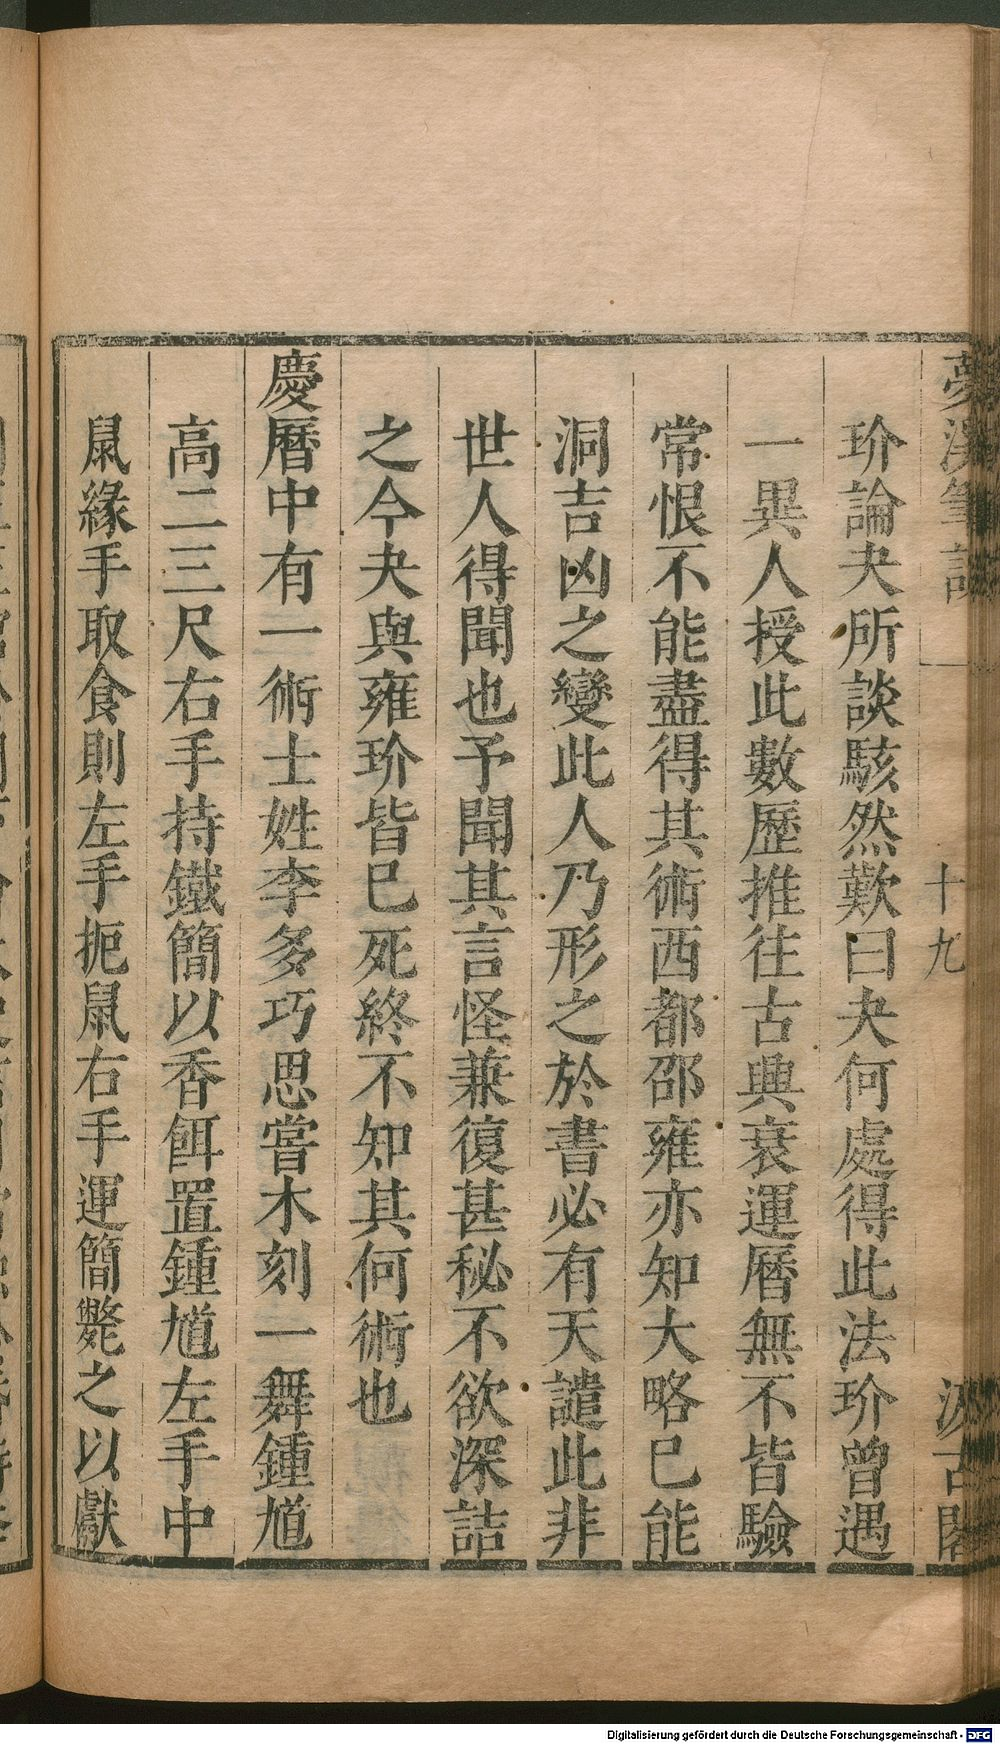 夢溪筆談 一 十九 汲古閣
玠論夬所談駭然歎曰夬何處得此法玠曾遇
一異人授此數歷推往古興衰運曆無不皆驗
常恨不能盡得其術西都邵雍亦知大略已能
洞吉凶之變此人乃形之於書必有天譴此非
世人得聞也予聞其言怪兼復甚秘不欲深詰
之今夬與雍玠皆已死終不知其何術也
慶曆中有一術士姓李多巧思嘗木刻一舞鍾馗
高二三尺右手持鐵簡以香餌置鍾馗左手中
鼠緣手取食則左手扼鼠右手運簡斃之以獻
Digitalisierung gefördert durch die Deutsche Forschungsgemeinschaft - DFG